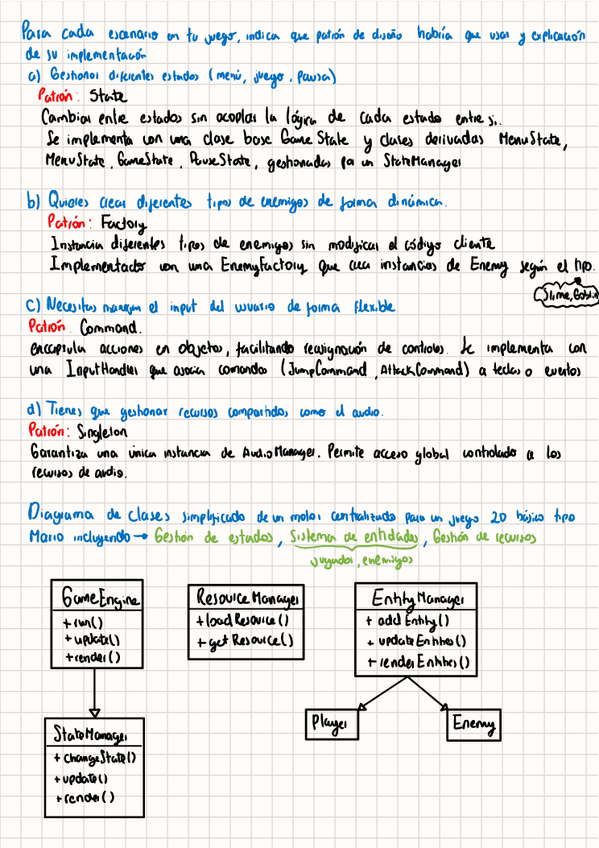 Para cada escenario en tu juego, indica que patrón de diseño habría que usar y explicación
de su implementación
a) Gestionar diferentes estados (menú, juego, pausa)
Patrón: State
Cambiar entre estados sin acoplar la lógica de cada estado entre si.
Se implementa con una clase base GameState y clases derivadas MenuState,
MenuState, GameState, PauseState, gestionadas por un StateManager
b) Quieres crear diferentes tipos de enemigos de forma dinámica.
Patrón: Factory
Instancia diferentes tipos de enemigos sin modificar el código cliente
Implementado con una EnemyFactory que crea instancias de Enemy según el tipo.
(Slime, Goblin
C) Necesitas manejar el input del usuario de forma flexible
Patrón: Command.
encapsula acciones en objetos, facilitando reasignación de controles. Se implementa con
una InputHandler que asocia comandos (JumpCommand, AttackCommand) a teclas o eventos
d) Tienes que gestionar recursos compartidos, como el audio.
Patrón: Singleton
Garantiza una única instancia de AudioManager. Permite acceso global controlado a los
recursos de audio.
Diagrama de clases simplificado de un motor centralizado para un juego 2D básico tipo
Mario incluyendo → Gestión de estados, Sistema de entidades, Gestión de recursos
jugador, enemigos
GameEngine
+ run()
+ update()
+ render()
ResourceManager
+ loadResource()
+ getResource()
EntityManager
+ addEntity()
+ updateEntities()
+ renderEntities()
StateManager
+ changeState()
+ update()
+ render()
Player
Enemy